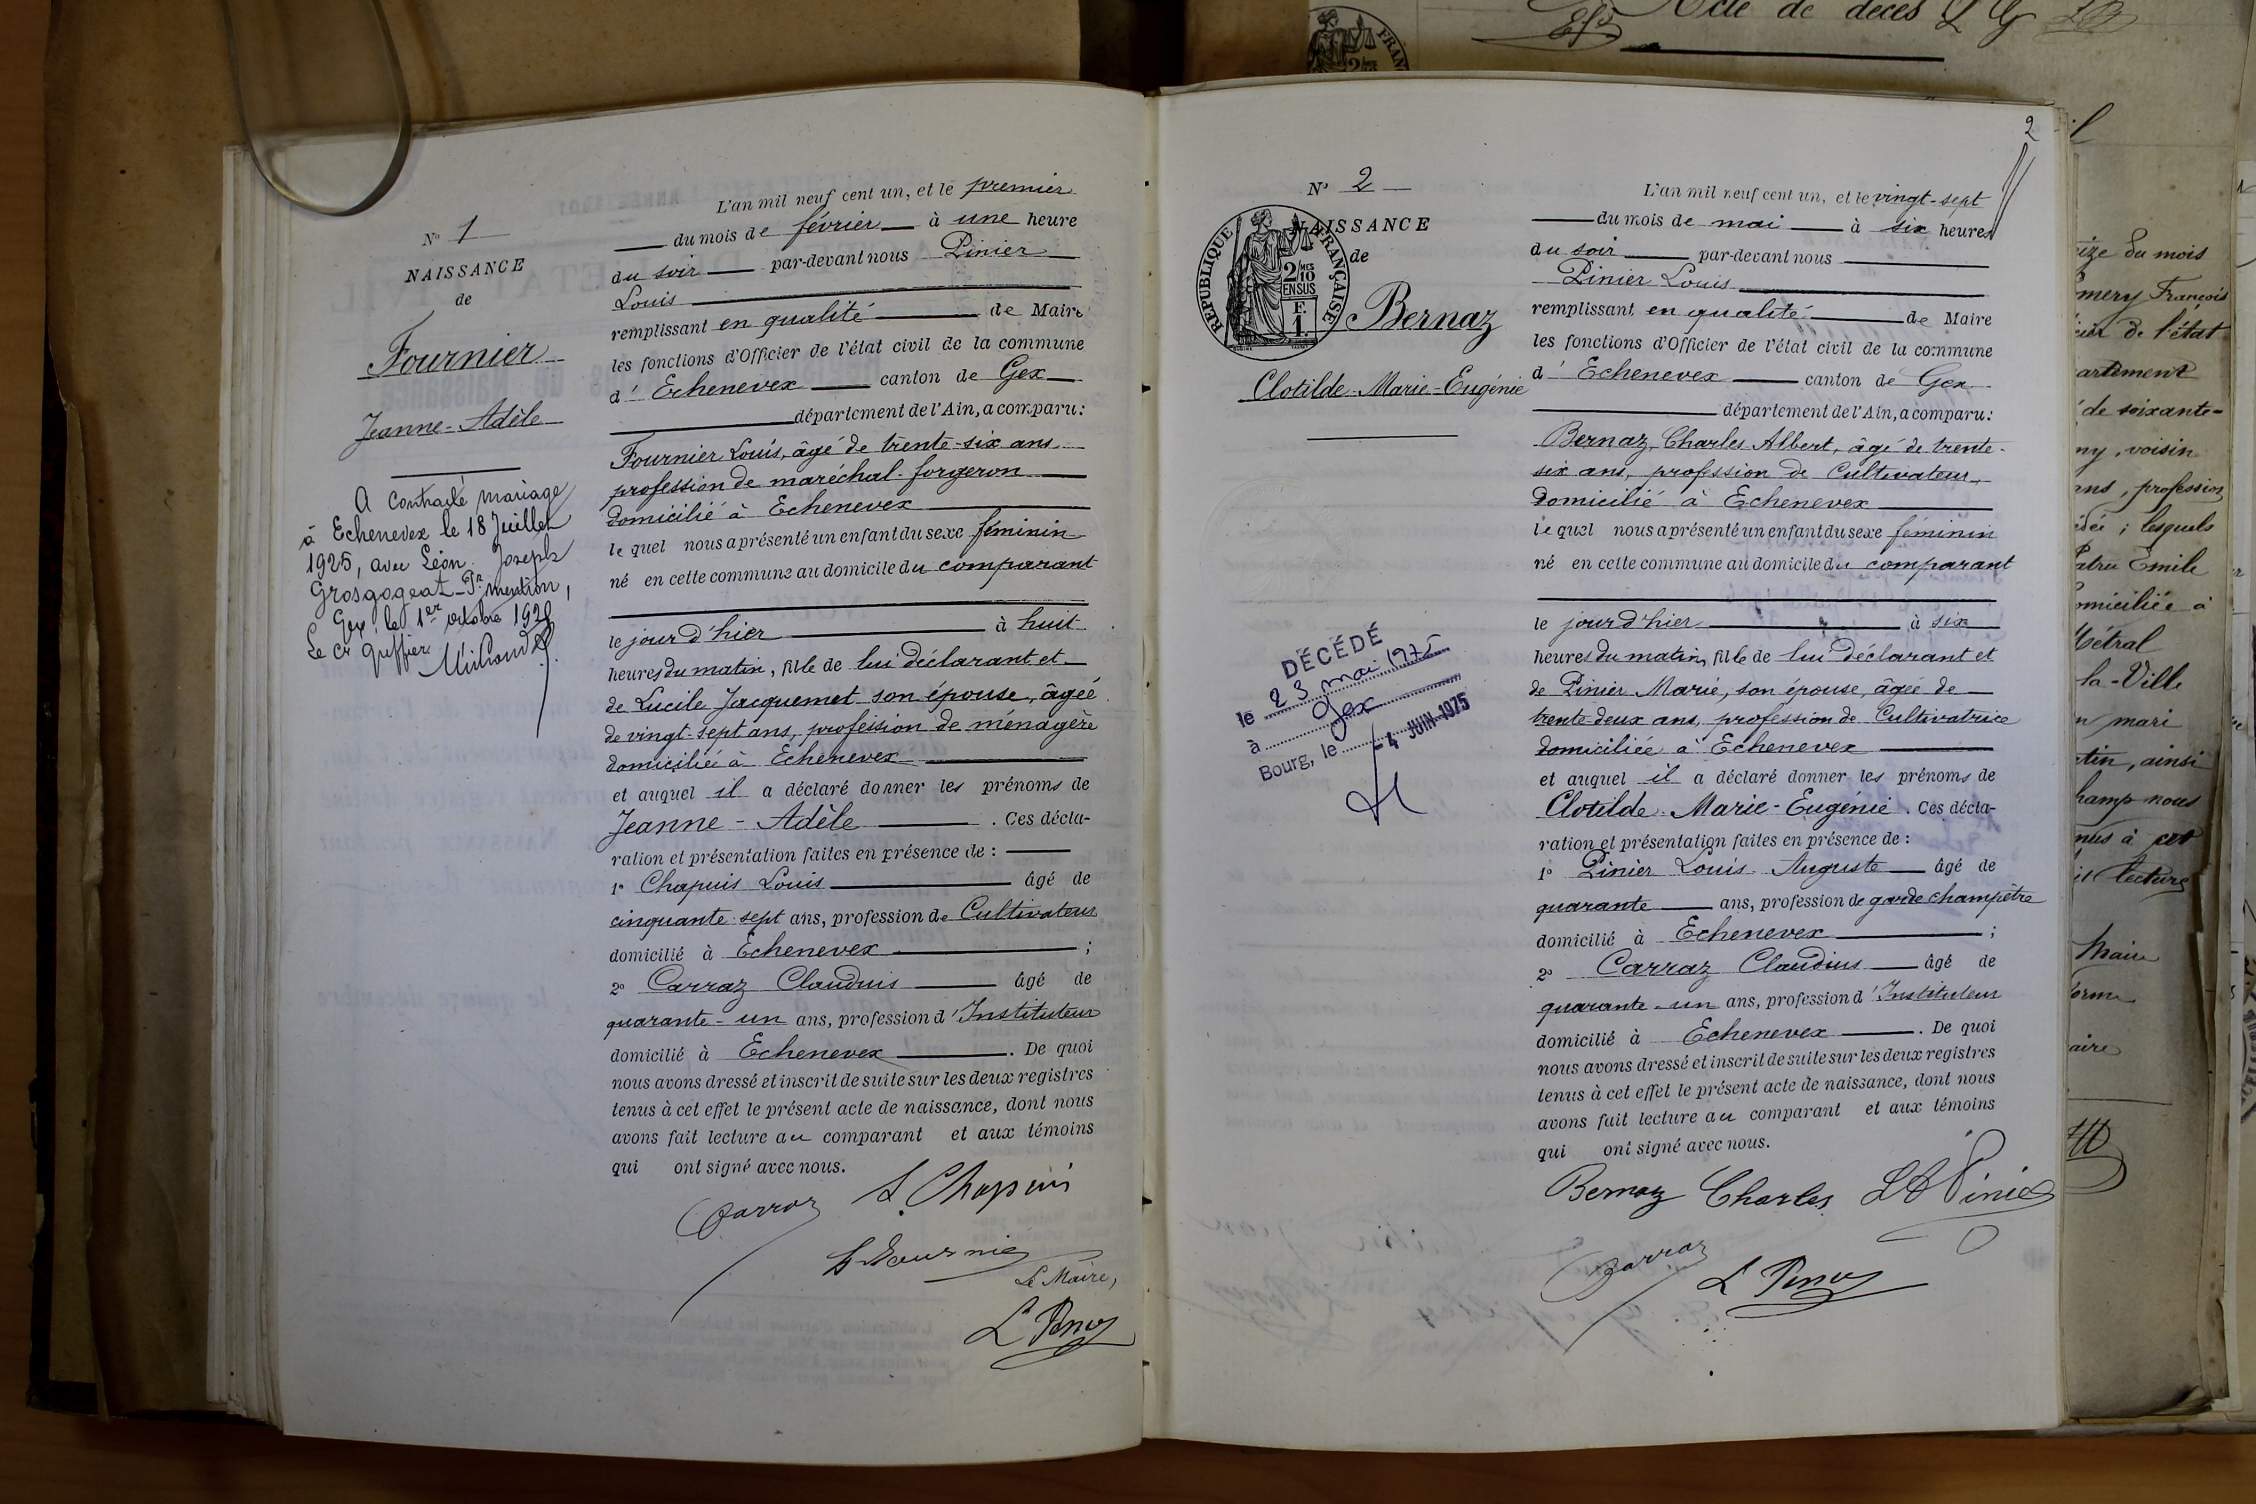 Acte de décès
N° 1
NAISSANCE
de
Fournier
Jeanne-Adèle
A contracté mariage
à Echenevex le 18 Juillet
1925, avec Léon Joseph
Grosgogeat - Pr mention,
Gex, le 1er octobre 1925
Le Cis greffier
L'an mil neuf cent un, et le premier
du mois de février à une heure
du soir par-devant nous Pinier
Louis
remplissant en qualité de Maire
les fonctions d'Officier de l'état civil de la commune
d'Echenevex canton de Gex
département de l'Ain, a comparu:
Fournier Louis, âgé de trente-six ans
profession de maréchal-forgeron
domicilié à Echenevex
lequel nous a présenté un enfant du sexe féminin
né en cette commune au domicile du comparant
le jour d'hier à huit
heures du matin, fille de lui déclarant et
de Lucile Jacquemet son épouse, âgée
de vingt-sept ans, profession de ménagère
domiciliée à Echenevex
et auquel il a déclaré donner les prénoms de
Jeanne-Adèle . Ces décla-
ration et présentation faites en présence de :
1° Chapuis Louis âgé de
cinquante-sept ans, profession de Cultivateur
domicilié à Echenevex ;
2° Carraz Claudius âgé de
quarante-un ans, profession d'Instituteur
domicilié à Echenevex . De quoi
nous avons dressé et inscrit de suite sur les deux registres
tenus à cet effet le présent acte de naissance, dont nous
avons fait lecture au comparant et aux témoins
qui ont signé avec nous.
Carraz L. Chapuis
L Fournier
Le Maire,
L Pinier
2
N° 2
NAISSANCE
de
RÉPUBLIQUE FRANÇAISE
2/10 MES
EN SUS
F.
1.
Bernaz
Clotilde-Marie-Eugénie
DÉCÉDÉ
le 23 mai 1975
à Gex
Bourg, le - 4 JUIN 1975
L'an mil neuf cent un, et le vingt-sept
du mois de mai à six heures
du soir par-devant nous
Pinier Louis
remplissant en qualité de Maire
les fonctions d'Officier de l'état civil de la commune
d'Echenevex canton de Gex
département de l'Ain, a comparu:
Bernaz, Charles Albert, âgé de trente-
six ans, profession de Cultivateur
domicilié à Echenevex
lequel nous a présenté un enfant du sexe féminin
né en cette commune au domicile du comparant
le jour d'hier à six
heures du matin, fille de lui déclarant et
de Pinier Marie, son épouse, âgée de
trente-deux ans, profession de Cultivatrice
domiciliée à Echenevex
et auquel il a déclaré donner les prénoms de
Clotilde-Marie-Eugénie . Ces décla-
ration et présentation faites en présence de :
1° Pinier Louis Auguste âgé de
quarante ans, profession de garde champêtre
domicilié à Echenevex ;
2° Carraz Claudius âgé de
quarante-un ans, profession d'Instituteur
domicilié à Echenevex . De quoi
nous avons dressé et inscrit de suite sur les deux registres
tenus à cet effet le présent acte de naissance, dont nous
avons fait lecture au comparant et aux témoins
qui ont signé avec nous.
Bernaz Charles L A Pinier
Carraz L Pinier
du mois
François
de l'état
de soixante-
voisin
profession
lesquels
Emile
à
Métral
la-Ville
mari
ainsi
nous
à cet
lecture
Maire